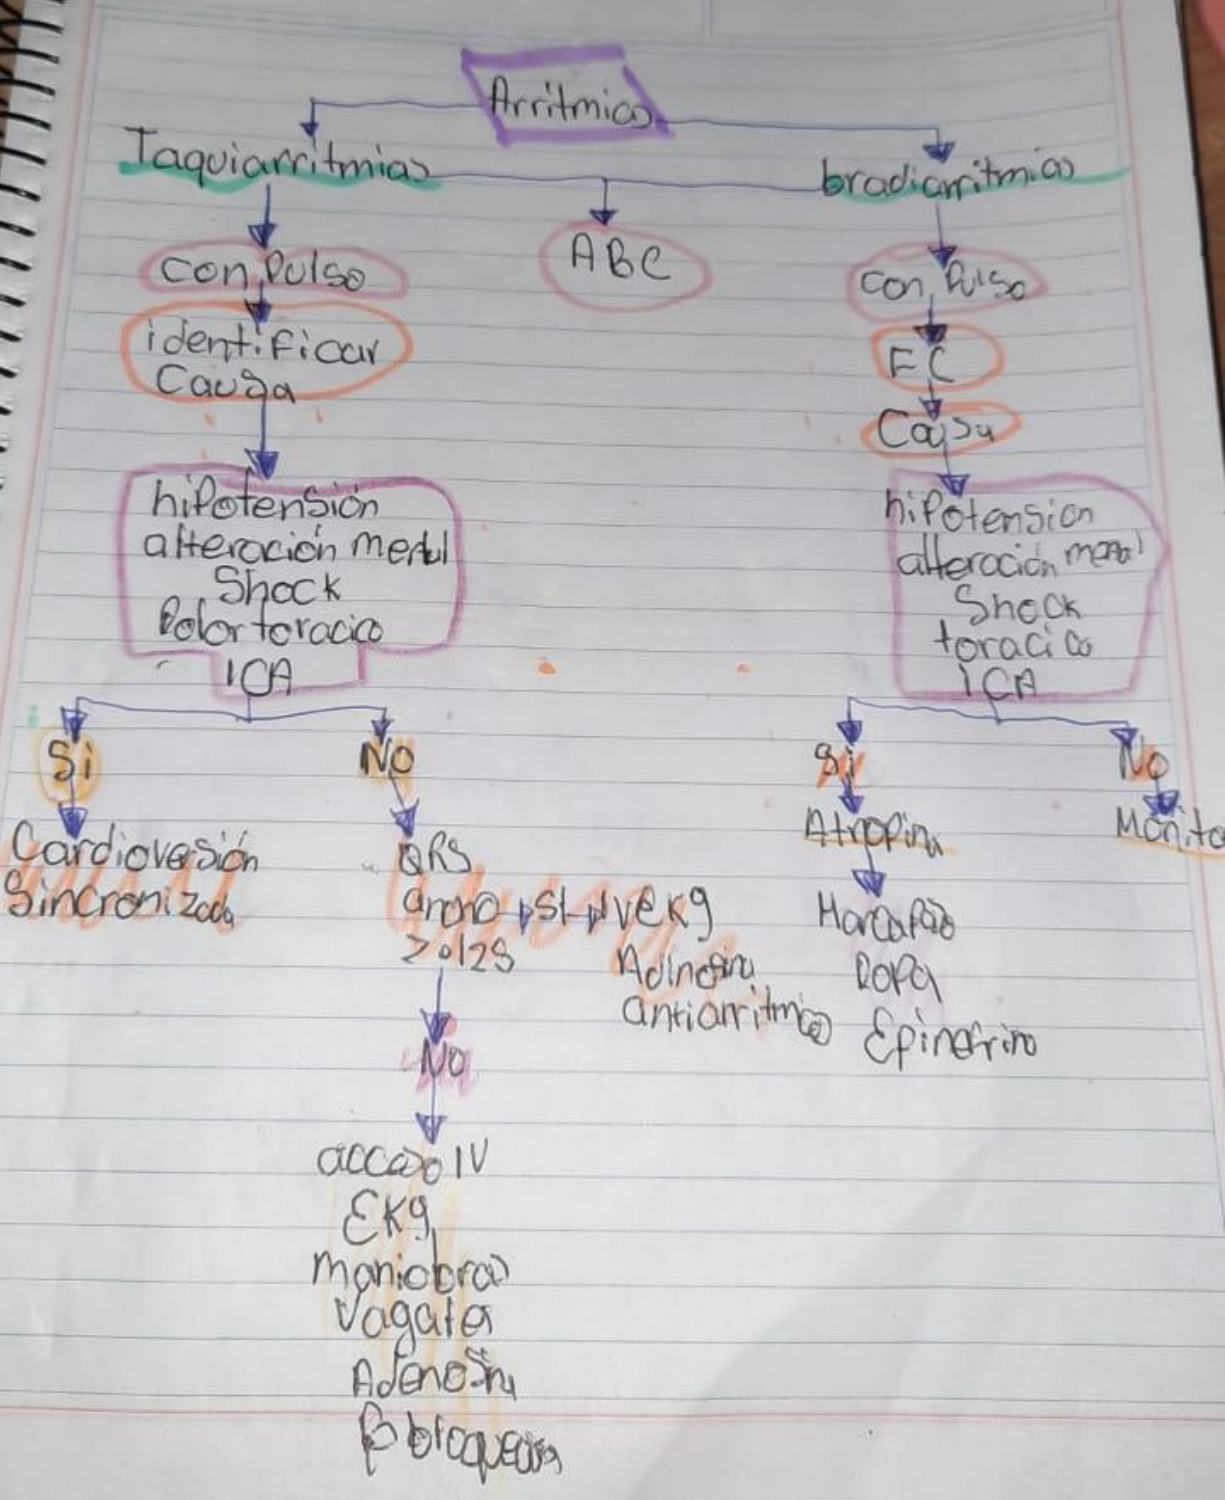 Arritmias
Taquiarritmias
bradiarritmias
ABC
Con Pulso
identificar
Causa
hipotensión
alteración mental
Shock
Dolor toracico
ICA
Si
No
Cardioversión
Sincronizada
QRS
ancho → SI → IV EKg
>0,12S
Adinosina
antiarritmico
No
acceso IV
EKg
maniobras
Vagales
Adenosina
β bloqueador
Con Pulso
FC
Causa
hipotension
alteración mental
Shock
toracico
ICA
Si
No
Atropina
Monito
Marcapaso
DOPA
Epinefrina